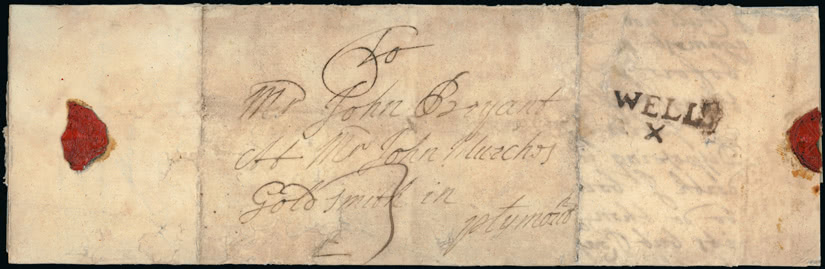 To
Mr John Bryant
At Mr John Murchos
Goldsmith in
plymouth
3
WELLS
X